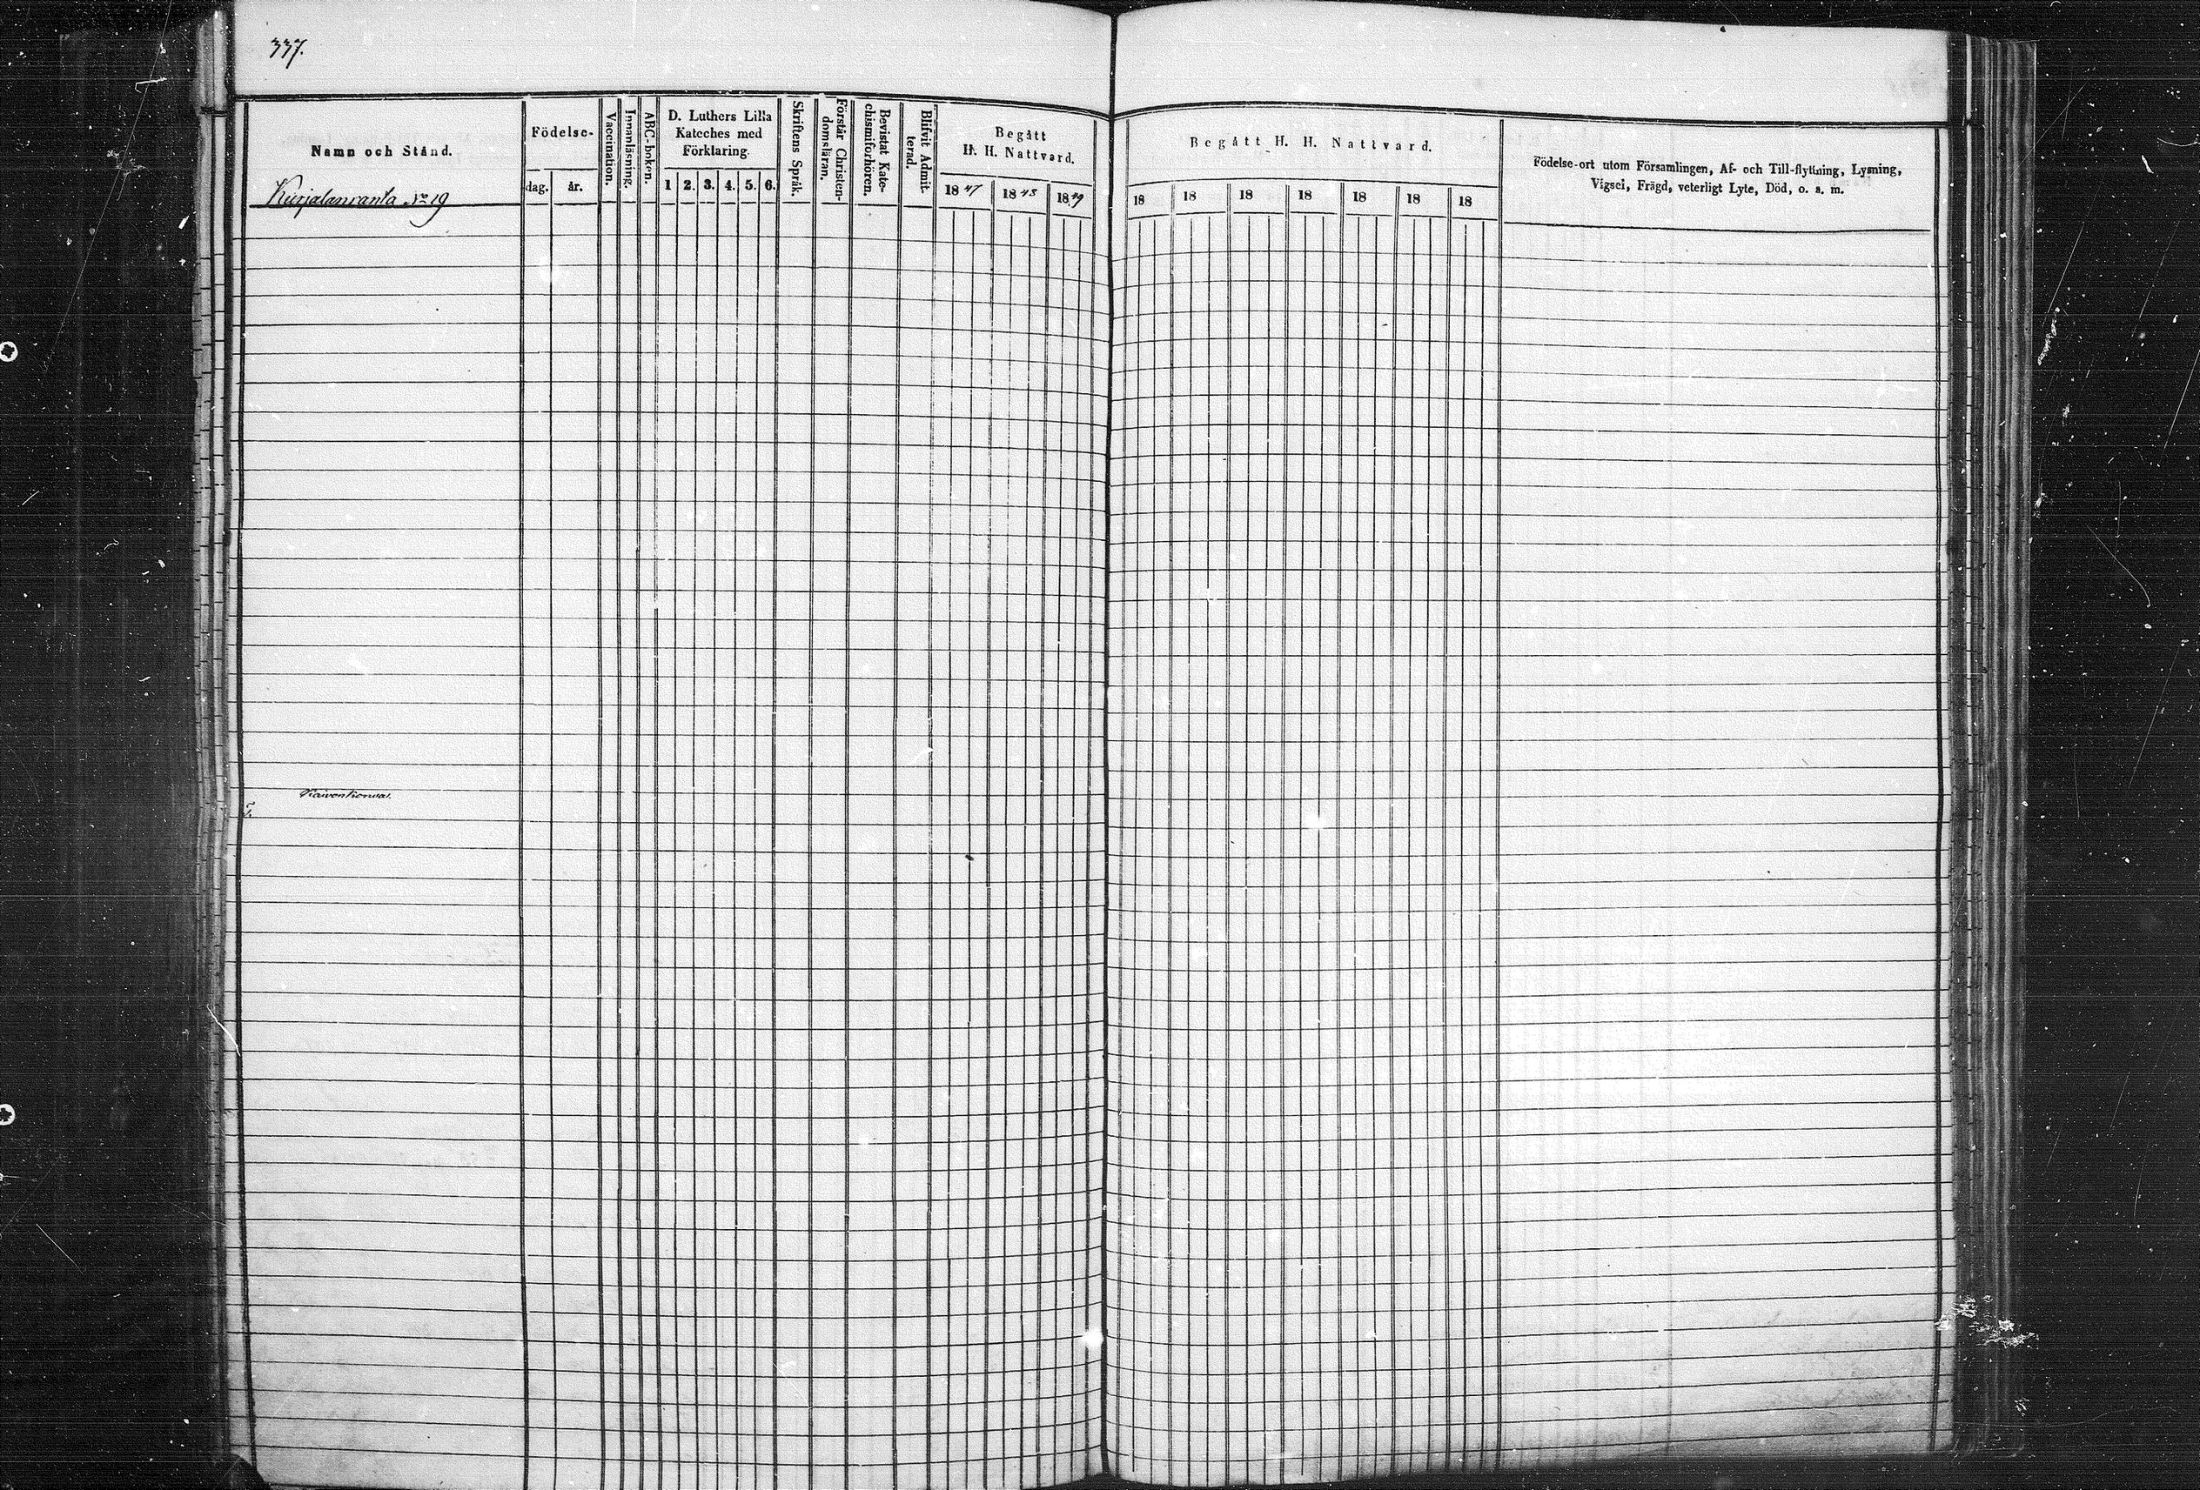 337.
Namn och Stånd.
Kurjalanranta No 19
Födelse-
dag. år.
Vaccination.
Innanläsning.
ABC-boken.
D. Luthers Lilla
Kateches med
Förklaring.
1 2. 3. 4. 5. 6.
Skriftens Språk.
Förstår Christen-
domsläran.
Bevistat Kate-
chismiförhören.
Blifvit Admit-
terad.
Begått
H. H. Nattvard.
1847 1848 1849
Begått H. H. Nattvard.
18 18 18 18 18 18 18
Födelse-ort utom Församlingen, Af- och Till-flyttning, Lysning,
Vigsel, Frägd, veterligt Lyte, Död, o. s. m.